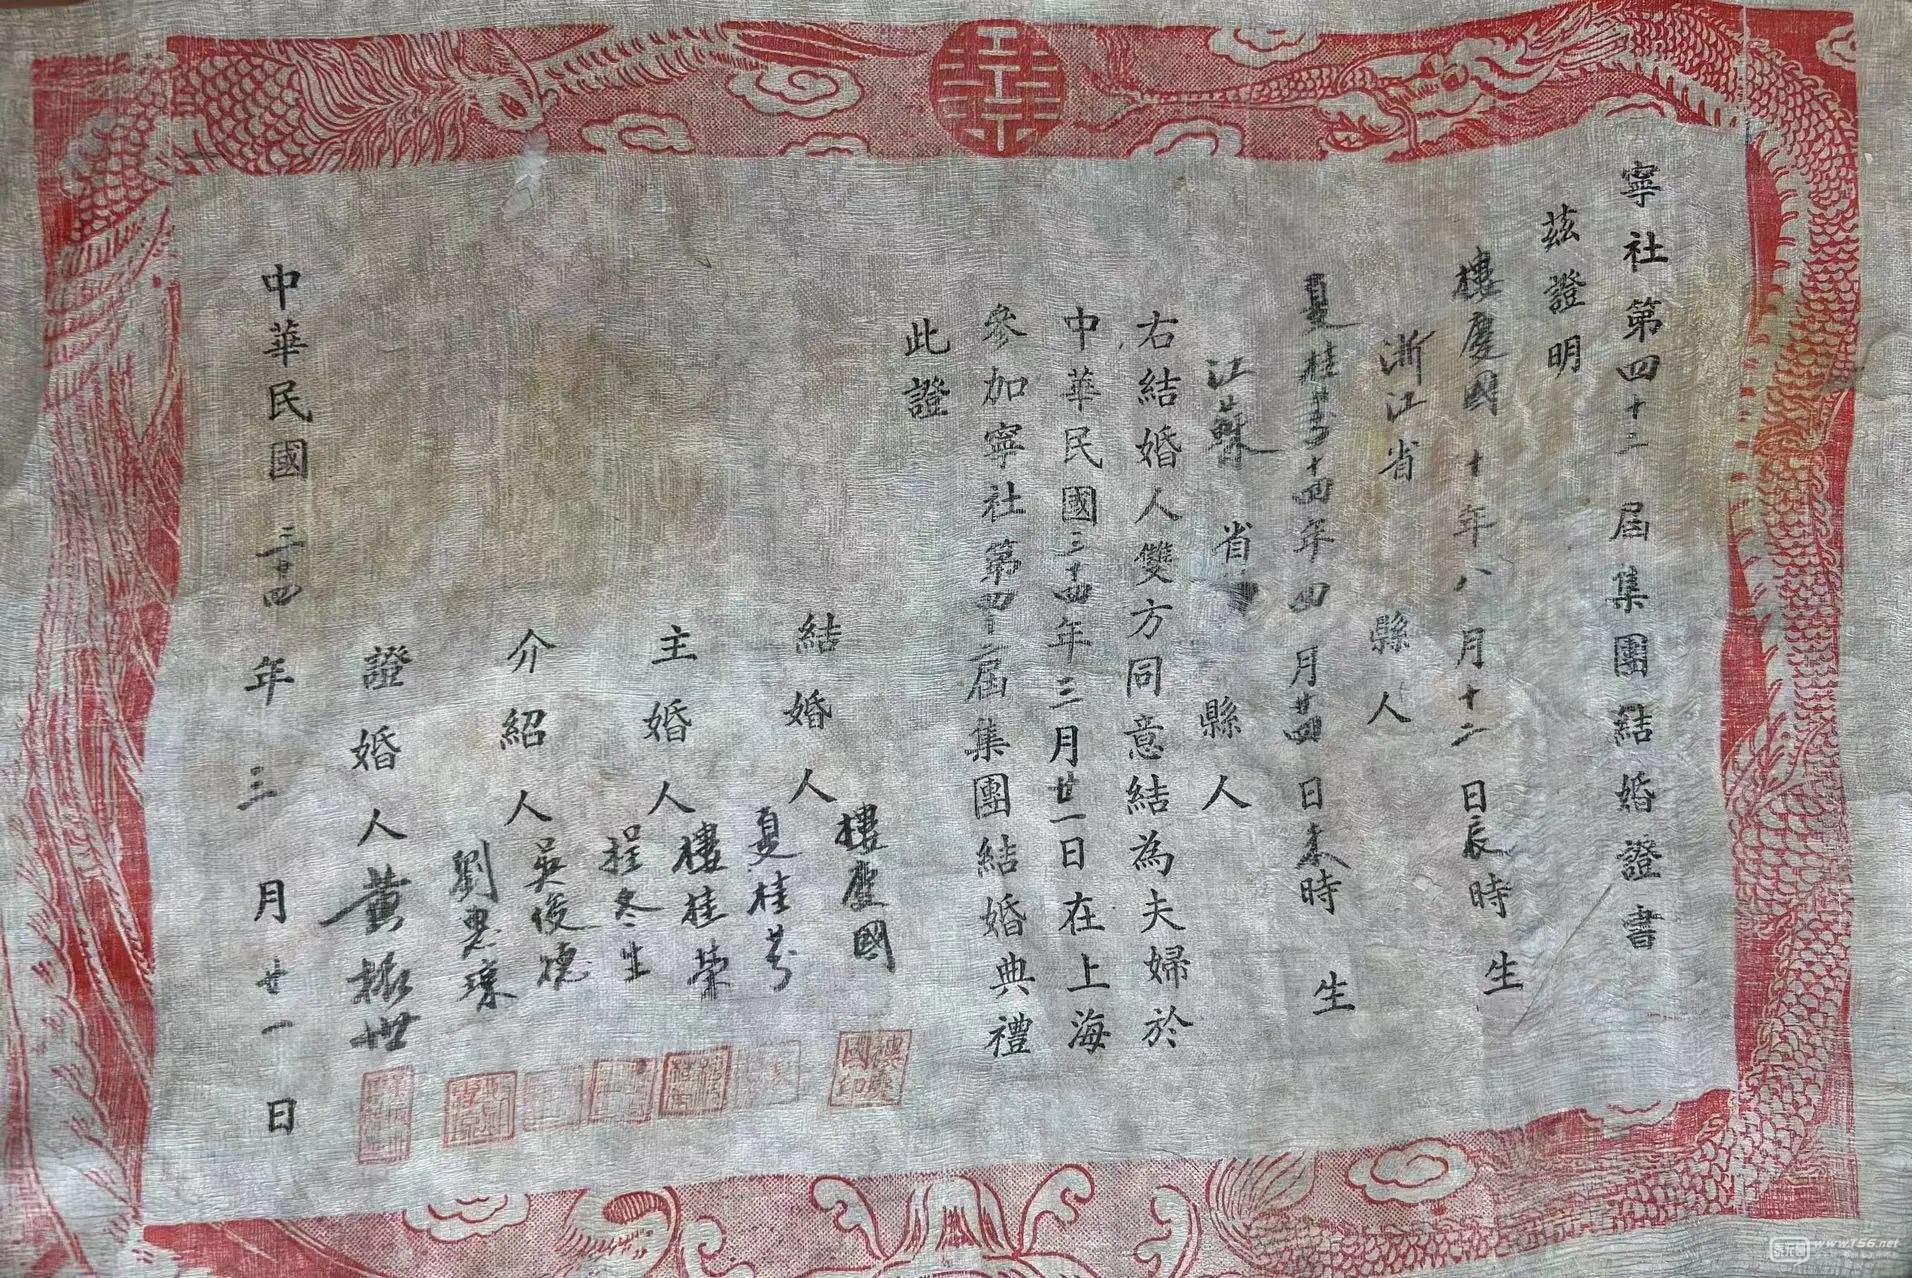 寧社第四十二屆集團結婚證書
茲證明
樓慶國 十年八月十二日辰時生
浙江省 縣人
夏桂芬 十四年四月廿四日未時生
江蘇省 縣人
右結婚人雙方同意結為夫婦於
中華民國三十四年三月廿一日在上海
參加寧社第四十二屆集團結婚典禮
此證
結婚人 樓慶國
夏桂芬
主婚人 樓桂榮
程冬生
介紹人 吳俊德
劉惠瓊
證婚人 黃振世
中華民國三十四年三月廿一日
樓慶國印
www.156.net